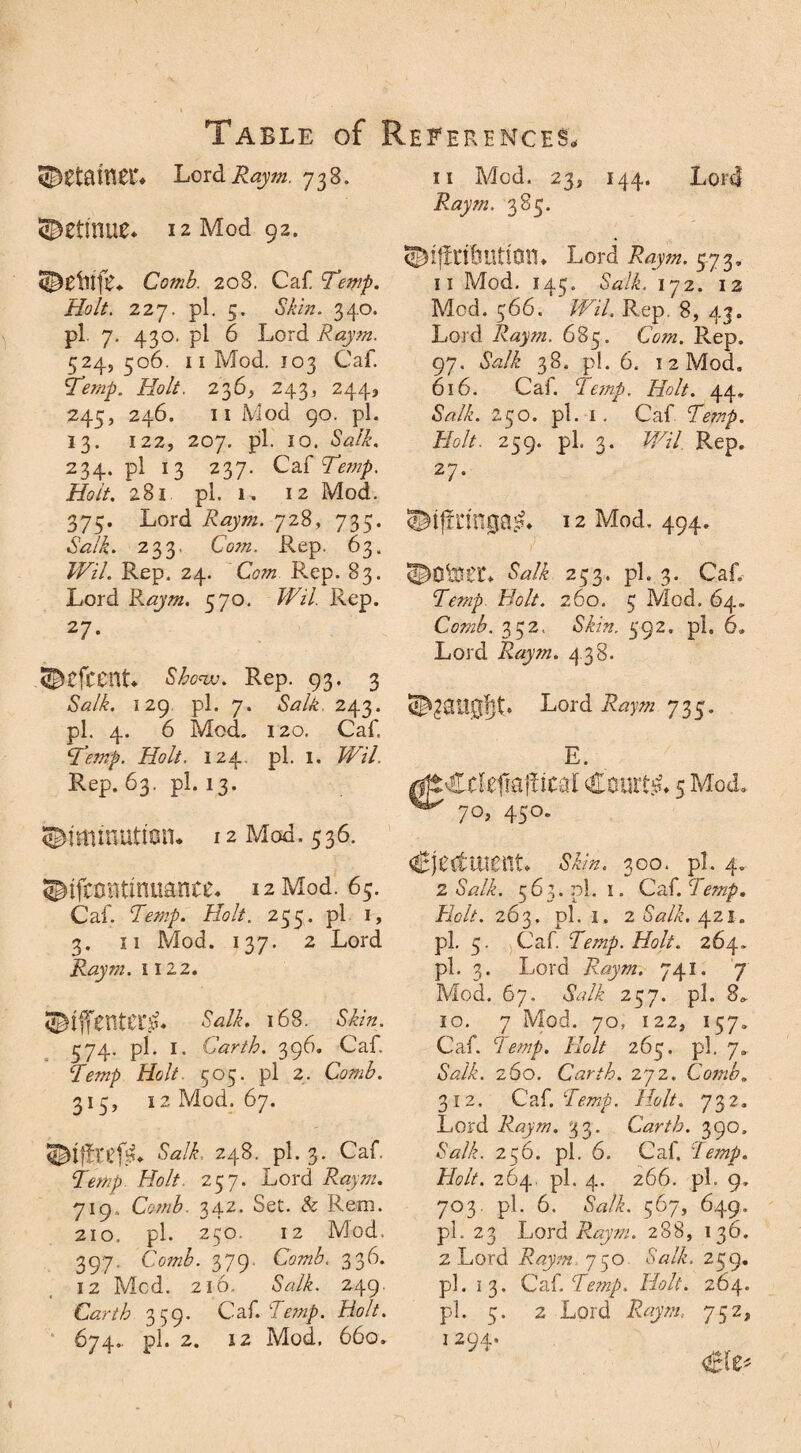 TABLE of REFERENCES.
Detainer. Lord Raym. 738.
Detinue. 12 Mod 92.
Devise. Comb. 208. Caſ. Temp.
Holt. 227. pl. 5. Skin. 340.
pl. 7. 430. pl 6 Lord Raym.
524, 506. 11 Mod. 103 Caſ.
Temp. Holt. 236, 243, 244,
245, 246. 11 Mod 90. pl.
13. 122, 207. pl. 10. Salk.
234. pl 13 237. Caſ Temp.
Holt. 281 pl. 1. 12 Mod.
375. Lord Raym. 728, 735.
Salk. 233. Com. Rep. 63.
Wil. Rep. 24. Com Rep. 83.
Lord Raym. 570. Wil. Rep.
27.
Deſcent. Show. Rep. 93. 3
Salk. 129 pl. 7. Salk. 243.
pl. 4. 6 Mod. 120. Caſ.
Temp. Holt. 124. pl. 1. Wil.
Rep. 63. pl. 13.
Diminution. 12 Mod. 536.
Diſcontinuance. 12 Mod. 65.
Caſ. Temp. Holt. 255. pl 1,
3. 11 Mod. 137. 2 Lord
Raym. 1122.
Diſſenters. Salk. 168. Skin.
574. pl. 1. Carth. 396. Caſ.
Temp Holt. 505. pl 2. Comb.
315, 12 Mod. 67.
Diſtreſs. Salk. 248. pl. 3. Caſ.
Temp Holt. 257. Lord Raym.
719. Comb. 342. Set. & Rem.
210. pl. 250. 12 Mod.
397. Comb. 379. Comb. 336.
12 Mod. 216. Salk. 249.
Carth 359. Caſ. Temp. Holt.
674. pl. 2. 12 Mod. 660.
11 Mod. 23, 144. Lord
Raym. 385.
Diſtribution. Lord Raym. 573.
11 Mod. 145. Salk. 172. 12
Mod. 566. Wil. Rep. 8, 43.
Lord Raym. 685. Com. Rep.
97. Salk 38. pl. 6. 12 Mod.
616. Caſ. Temp. Holt. 44.
Salk. 250. pl. 1. Caſ Temp.
Holt. 259. pl. 3. Wil. Rep.
27.
Diſtringas. 12 Mod. 494.
Dower. Salk 253. pl. 3. Caſ.
Temp Holt. 260. 5 Mod. 64.
Comb. 352. Skin. 592. pl. 6.
Lord Raym. 438.
Dꝛaught. Lord Raym 735.
E.
Eccleſiaſtical Courts. 5 Mod.
70, 450.
Ejectment. Skin. 300. pl. 4.
2 Salk. 563. pl. 1. Caſ. Temp.
Holt. 263. pl. 1. 2 Salk. 421.
pl. 5. Caſ. Temp. Holt. 264.
pl. 3. Lord Raym. 741. 7
Mod. 67. Salk 257. pl. 8.
10. 7 Mod. 70, 122, 157.
Caſ. Temp. Holt 265. pl. 7.
Salk. 260. Carth. 272. Comb.
312. Caſ. Temp. Holt. 732.
Lord Raym. 33. Carth. 390.
Salk. 256. pl. 6. Caſ. Temp.
Holt. 264. pl. 4. 266. pl. 9.
703. pl. 6. Salk. 567, 649.
pl. 23 Lord Raym. 288, 136.
2 Lord Raym. 750 Salk. 259.
pl. 13. Caſ. Temp. Holt. 264.
pl. 5. 2 Lord Raym. 752,
1294.
Ele-